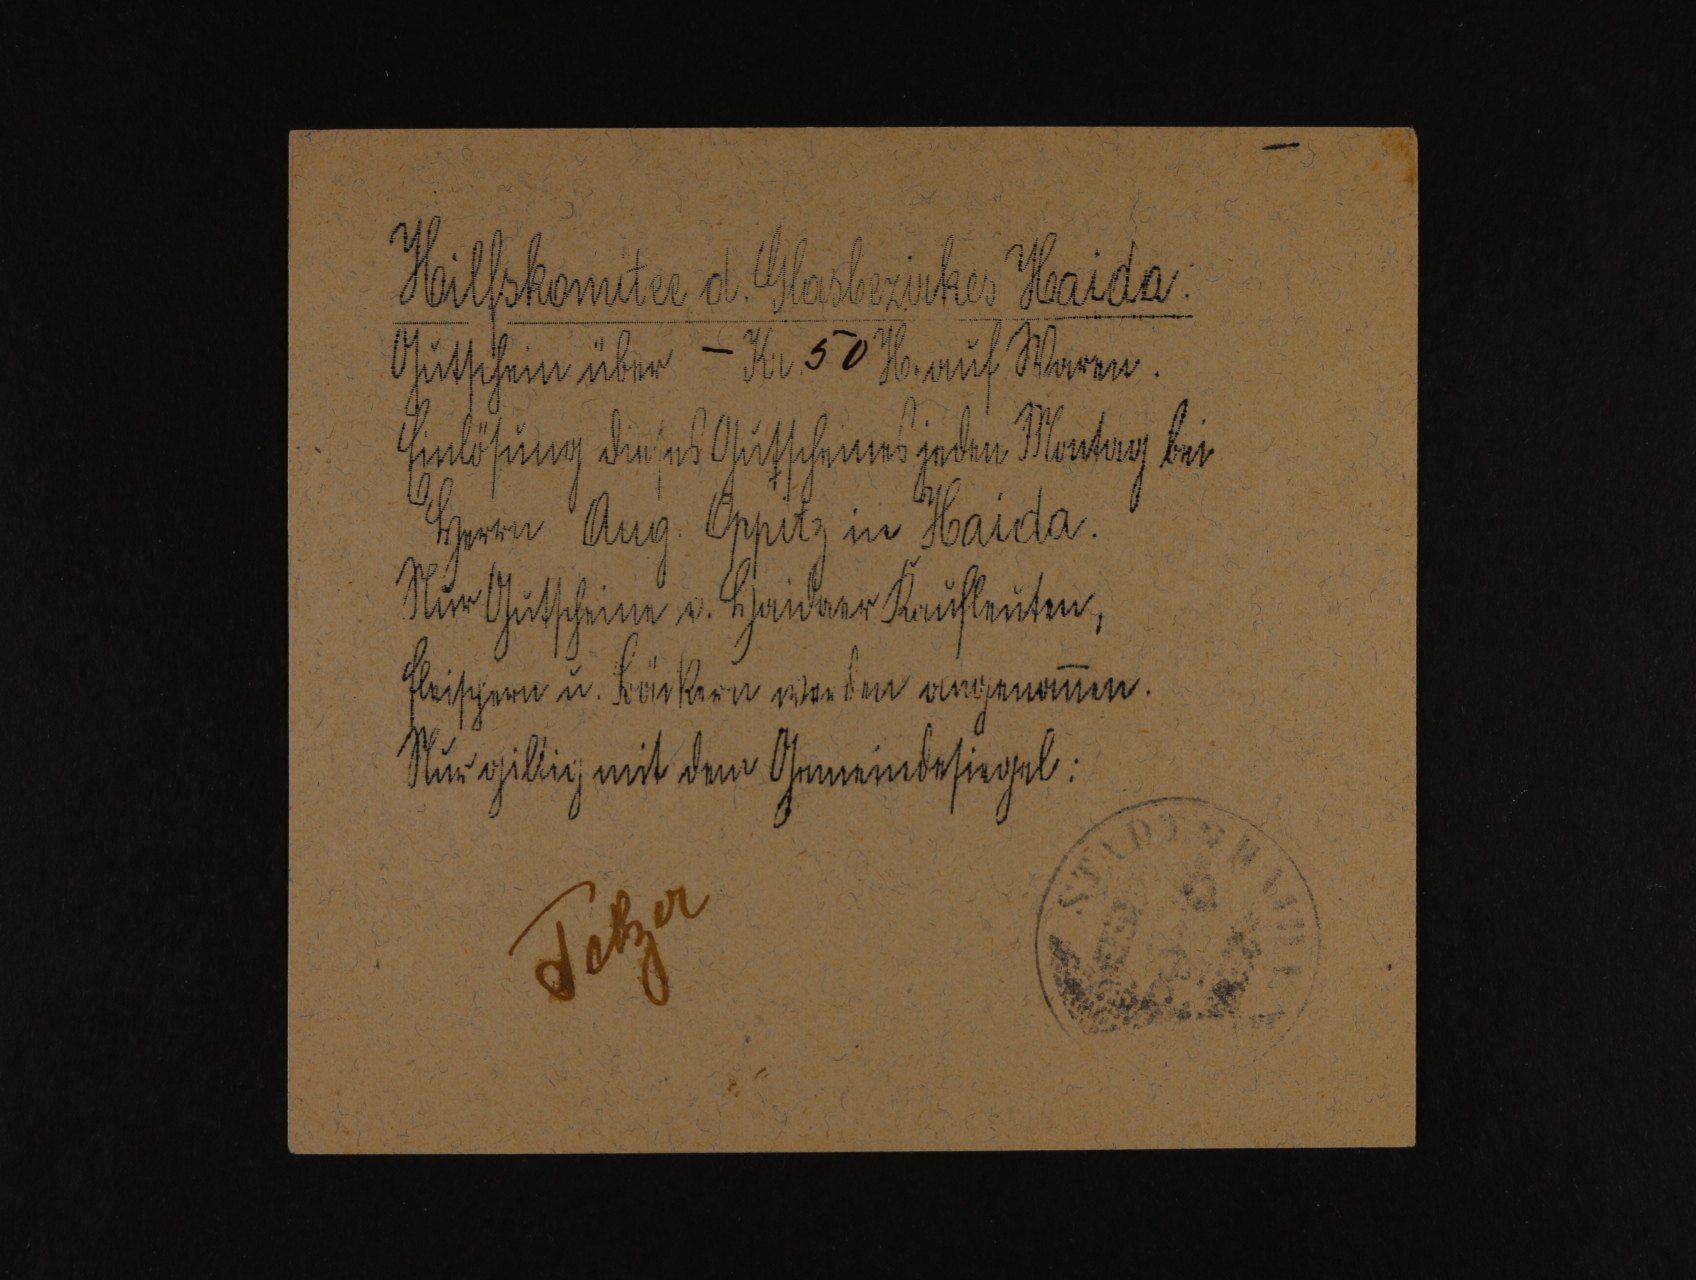 Hilfskomitee d. Glasbezirkes Haida.
Gutschein über – Kr. 50 H. auf Waren.
Einlösung dieses Gutscheines jeden Montag bei
Herrn Aug. Oppitz in Haida.
Nur Gutscheine v. Haidaer Kaufleuten,
Fleischern u. Bäckern werden angenom̅en.
Nur giltig mit dem Gemeindesiegel: